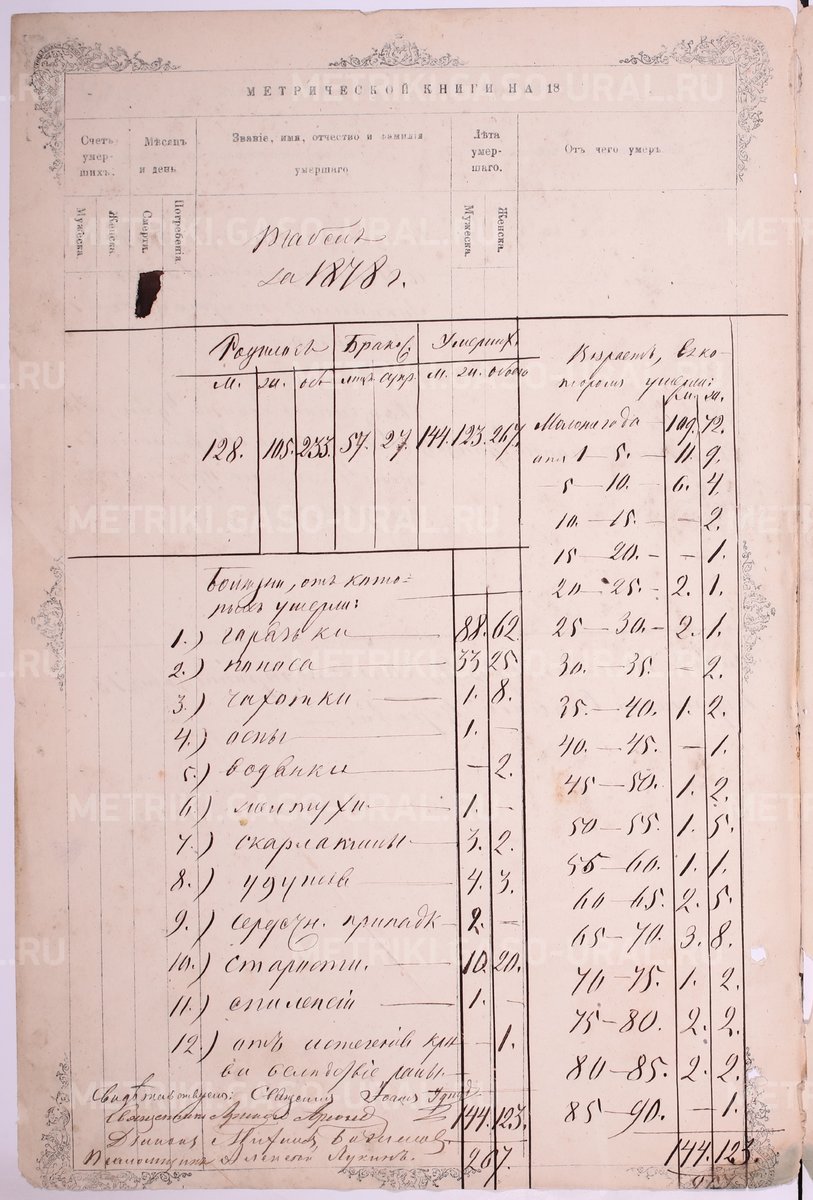 МЕТРИЧЕСКОЙ КНИГИ НА 18
Счетъ умершихъ.
Мѣсяцъ и день
Званіе, имя, отчество и фамилія умершаго
Лѣта умершаго.
Отъ чего умеръ
Мужеска.
Женска.
Смерти.
Погребенія
Мужеска.
Женска.
Табель
за 1878 г.
Родилось Браков. Умершихъ
м. ж. об. лицъ супр. м. ж. обоего
128. 105. 233. 57. 27. 144. 123. 267.
Возрастъ, въ ко-
торомъ умерли:
м. ж.
Моложе года — 109. 72.
отъ 1 — 5. — 11. 9.
5 — 10. — 6. 4.
10. — 15. — — 2.
15 — 20. — — 1.
20 — 25. — 2. 1.
25 — 30. — 2. 1.
30. — 35. — 2.
35. — 40. 1. 2.
40. — 45. — 1.
45 — 50. 1. 2.
50 — 55. 1. 5.
55 — 60. 1. 1.
60 — 65. 2. 5.
65 — 70. 3. 8.
70 — 75. 1. 2.
75 — 80. 2. 2.
80 — 85. 2. 2.
85 — 90. — 1.
144. 123.
Болѣзни, отъ кото-
рыхъ умерли:
1.) горячки — 88. 62.
2.) поноса — 33 25
3.) чахотки — 1. 8.
4.) оспы — 1. —
5.) водянки — — 2.
6.) желтухи. 1. —
7.) скарлатины — 3. 2.
8.) удушья — 4. 3.
9.) сердечн. припадк — 2. —
10.) старости. 10. 20.
11.) эпилепсіи — 1. —
12.) отъ истеченія кро- — 1.
ви вслѣдствіе раны —
144. 123.
Священникъ
Діаконъ Михаилъ
Псаломщикъ Алексѣй Лукинъ.
267.
METRIKI.GASO-URAL.RU